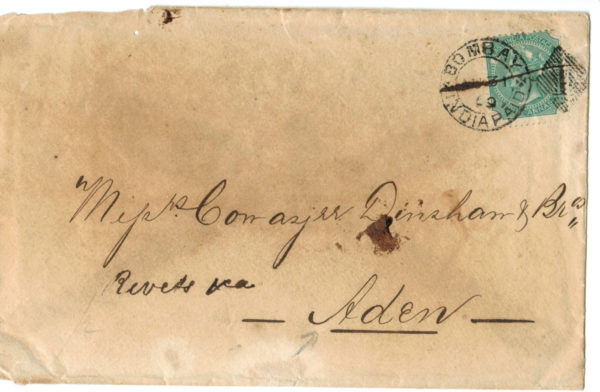 BOMBAY
INDIA PAID
"Messrs Cowasjee Dinshaw & Bros"
Aden